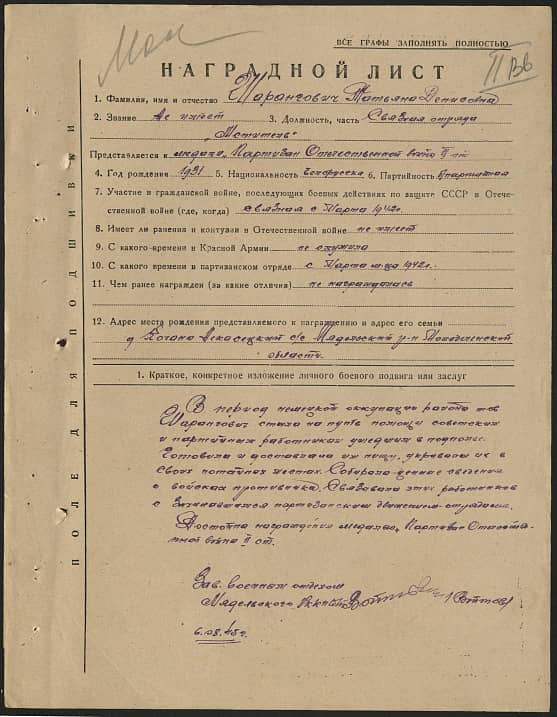 ВСЕ ГРАФЫ ЗАПОЛНЯТЬ ПОЛНОСТЬЮ
НАГРАДНОЙ ЛИСТ
1. Фамилия, имя и отчество Шарангович Татьяна Денисовна
2. Звание не имеет 3. Должность, часть Связная отряда
„Мститель"
Представляется к медали „Партизан Отечественной войны II ст.
4. Год рождения 1931 5. Национальность Белоруска 6. Партийность б/партийная
7. Участие в гражданской войне, последующих боевых действиях по защите СССР в Отече-
ственной войне (где, когда) связная с Марта 1942г.
8. Имеет ли ранения и контузии в Отечественной войне не имеет
9. С какого-времени в Красной Армии не служила
10. С какого времени в партизанском отряде с Марта м-ца 1942г.
11. Чем ранее награжден (за какие отличия) не награждалась
12. Адрес места рождения представляемого к награждению и адрес его семьи
д. с/с Мядельский р-н Молодеченской
области.
1. Краткое, конкретное изложение личного боевого подвига или заслуг
В период немецкой оккупации тов
Шарангович стала на путь помощи советским
и партийным работникам ушедшим в подполье.
Готовила и доставляла им пищу, укрывала их в
своих потайных местах. Собирала ценные сведения
о войсках противника. Связовала этих работников
с партизанским движением-отрядами.
Достойна награждения медалью „Партизан Отечествен-
ной войны II ст.
Зав. военным отделом
Мядельского
6.08.48г.
ПОЛЕ ДЛЯ ПОДШИВКИ